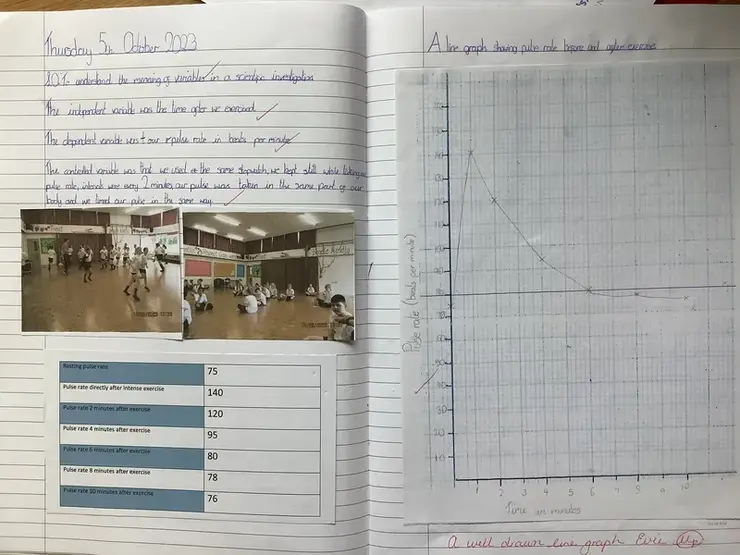 Thursday 5th October 2023
LO: To understand the meaning of variables in a scientific investigation
The independent variable was the time after we exercised
The dependent variable was our pulse rate in beats per minute
The controlled variable was that we used the same stopwatch, we kept still while taking
pulse rate, intervals were every 2 minutes, our pulse was taken in the same part of our
body and we timed our pulse in the same way.
Resting pulse rate 75
Pulse rate directly after intense exercise 140
Pulse rate 2 minutes after exercise 120
Pulse rate 4 minutes after exercise 95
Pulse rate 6 minutes after exercise 80
Pulse rate 8 minutes after exercise 78
Pulse rate 10 minutes after exercise 76
A line graph showing pulse rate before and after exercise
Pulse rate (beats per minute)
30
20
10
1 2 3 4 5 6 7 8 9 10
Time in minutes
A well drawn line graph Evie